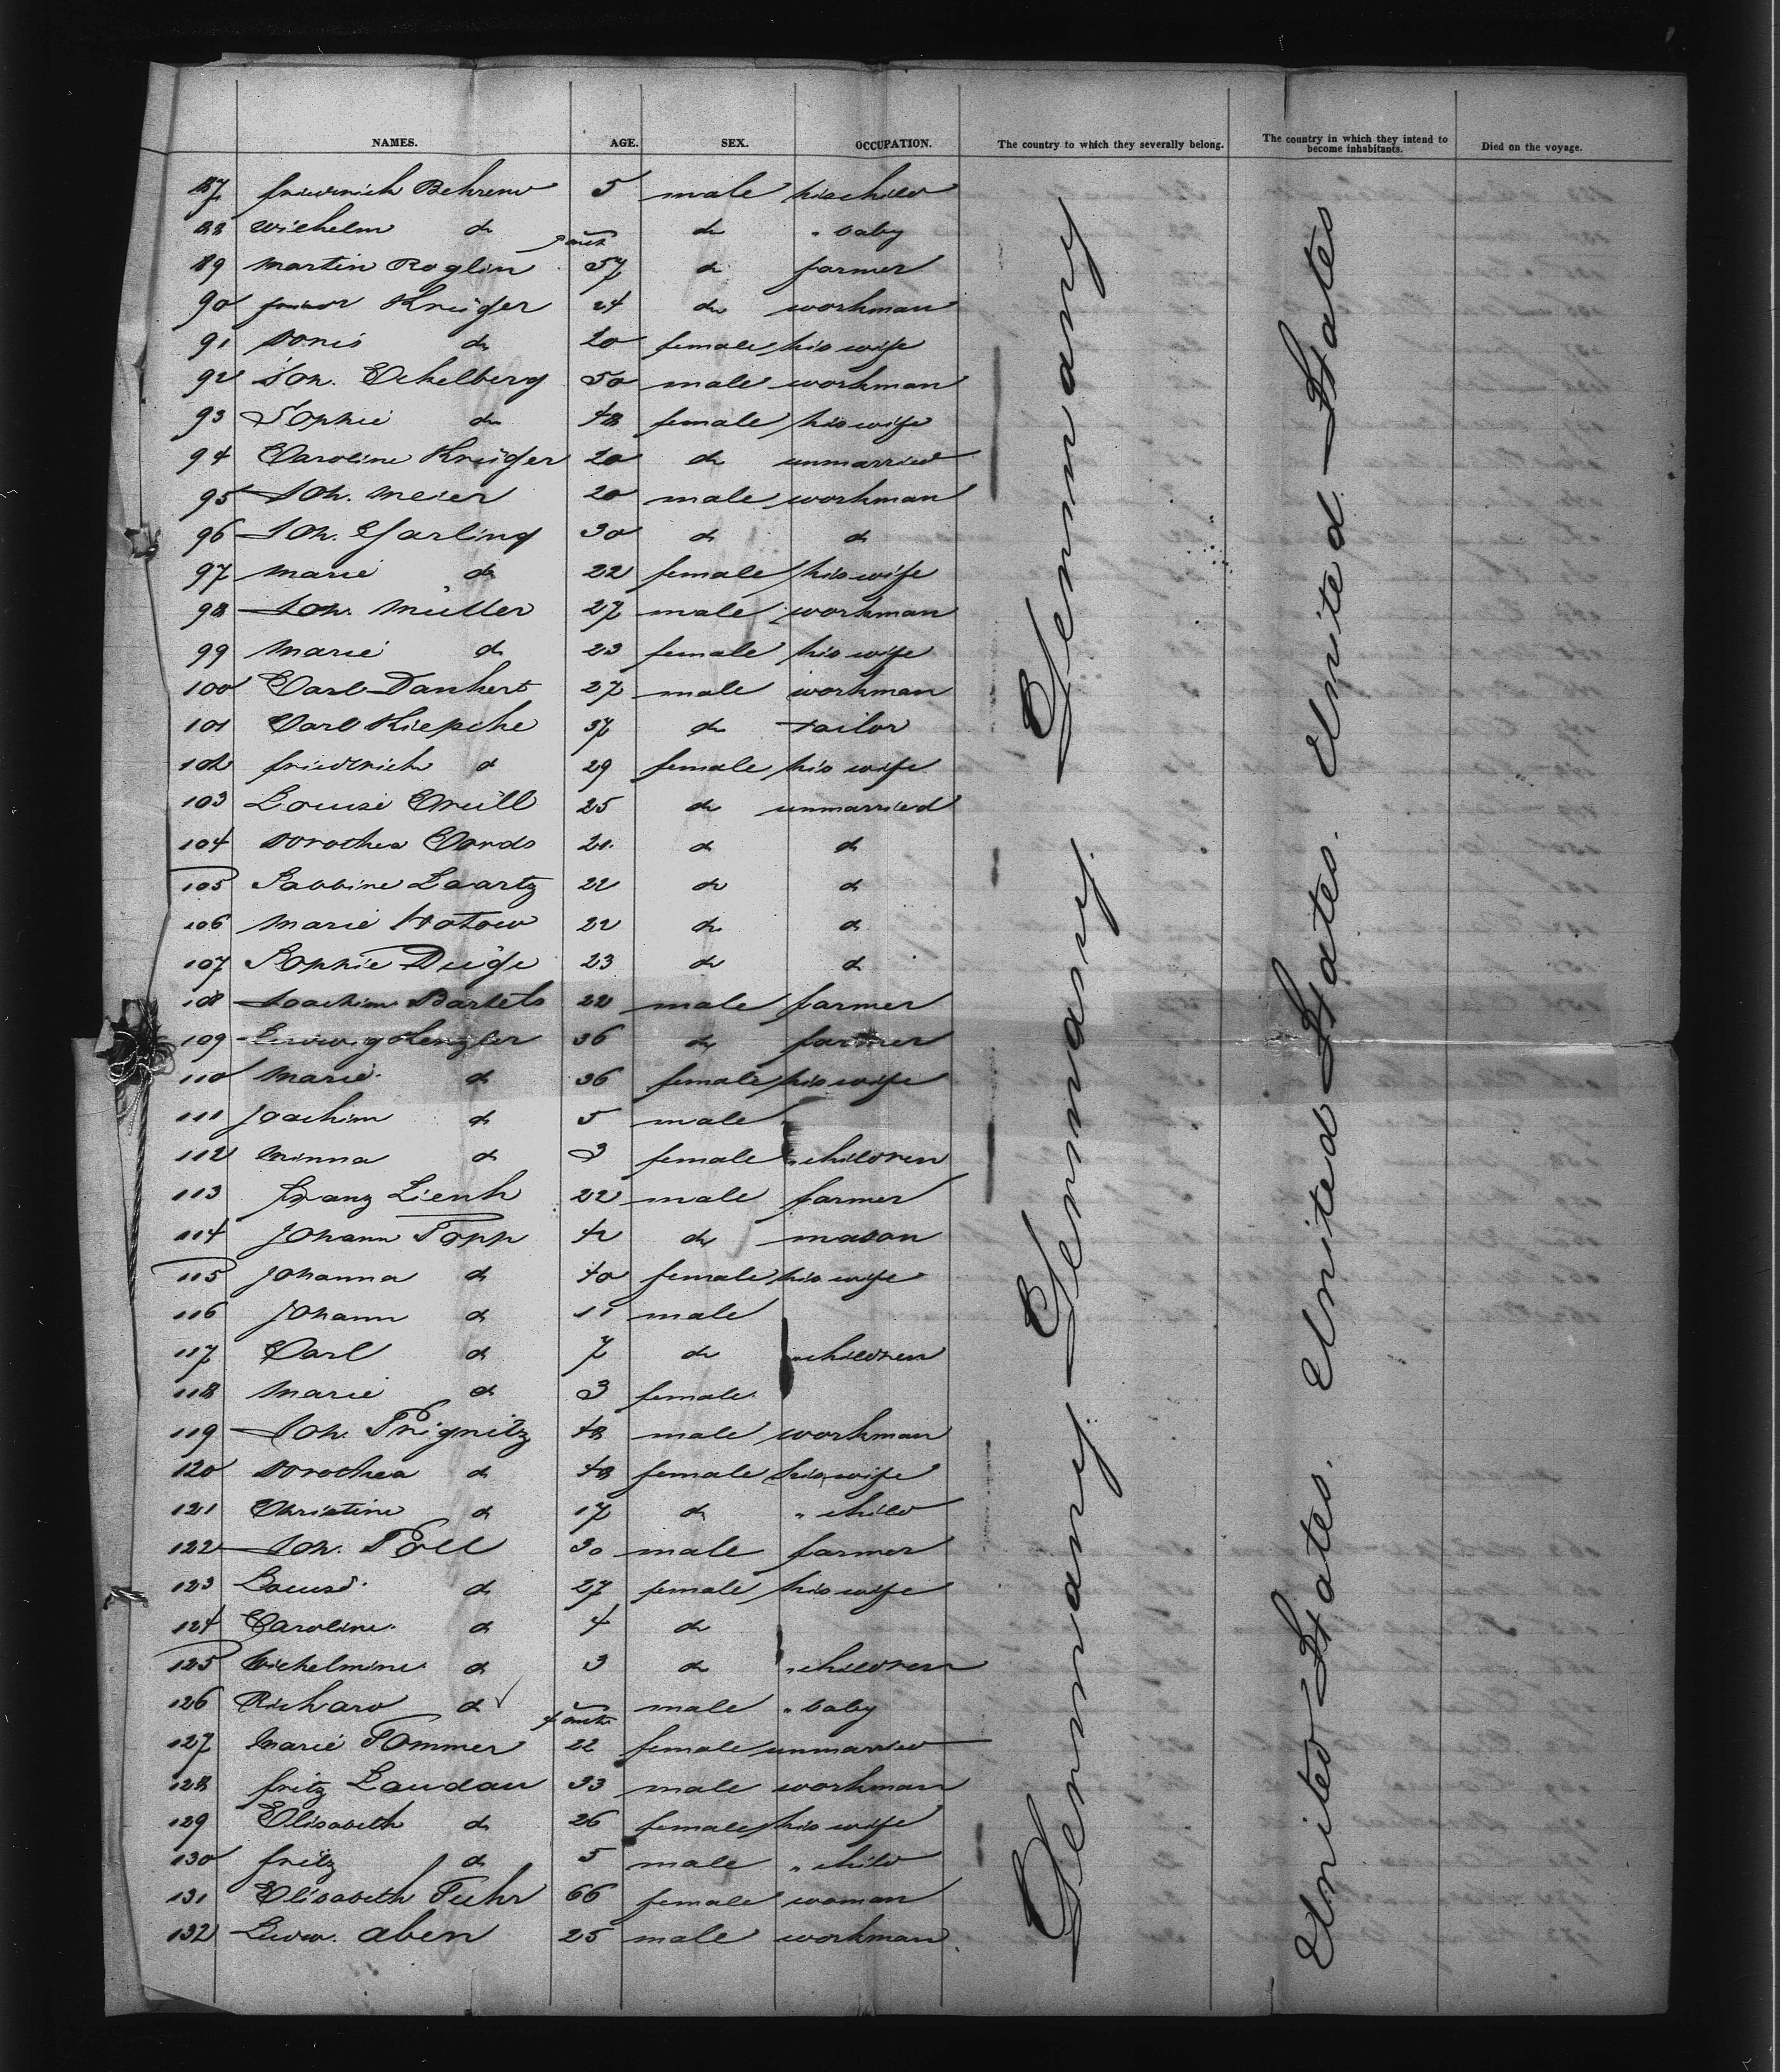 NAMES. AGE. SEX. OCCUPATION. The country to which they severally belong. The country in which they intend to become inhabitants. Died on the voyage.
87 friedrich Behrens 5 male his child
88 Wilhelm do do " baby
89 Martin Röglin 57 do farmer
90 Krüger 24 do workman
91 Doris do 20 female his wife
92 Joh. Eckelberg 50 male workman
93 Sophie do 48 female his wife
94 Caroline Krüger 20 do unmarried
95 Joh. Meier 20 male workman
96 Joh. Garling 30 do do
97 Marie do 22 female his wife
98 Joh. Müller 27 male workman
99 Marie do 23 female his wife
100 Carl Dankert 27 male workman
101 Carl Kiepcke 37 do tailor
102 friedrich d 29 female his wife
103 Louise Crüll 25 do unmarried
104 Dorothea Cords 21 d d
105 Sabbine Laartz 22 do d
106 Marie Hotow 22 do d
107 Sophie Deige 23 do d
108 Joachim Bartels 22 male farmer
109 Ludwig 36 do farmer
110 Marie do 36 female his wife
111 Joachim do 5 male
112 Minna d 3 female " children
113 Franz Lienk 22 male farmer
114 Johann Topp 42 do mason
115 Johanna do 40 female his wife
116 Johann do 11 male
117 Carl d 7 do " children
118 Marie d 3 female
119 Joh. Prignitz 48 male workman
120 Dorothea d 48 female his wife
121 Christine d 17 do " child
122 Joh. Poll 30 male farmer
123 Louise do 27 female his wife
124 Caroline do 4 do
125 Wilhelmine do 3 do " children
126 Richard do male " baby
127 Marie Pommer 22 female unmarried
128 fritz Landau 33 male workman
129 Elisabeth do 26 female his wife
130 fritz d 5 male " child
131 Elisabeth Fuhr 66 female woman
132 Ludw. Aben 25 male workman
Germany Germany Germany Germany
United States. United States. United States